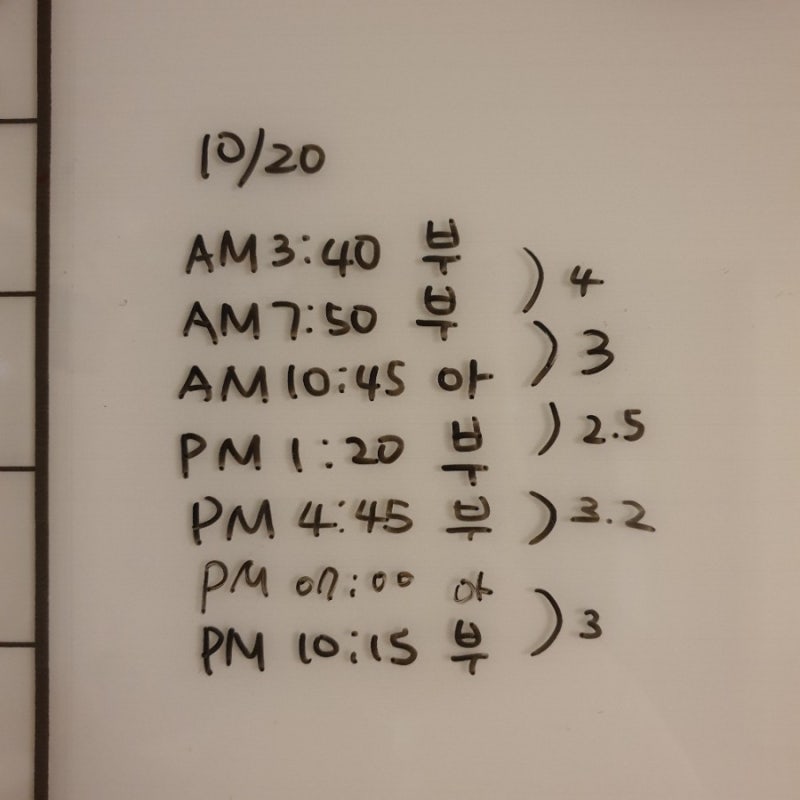 10/20
AM 3:40 부
) 4
AM 7:50 부
) 3
AM 10:45 아
) 2.5
PM 1:20 부
PM 4:45 부 ) 3.2
PM 07:00 아
) 3
PM 10:15 부